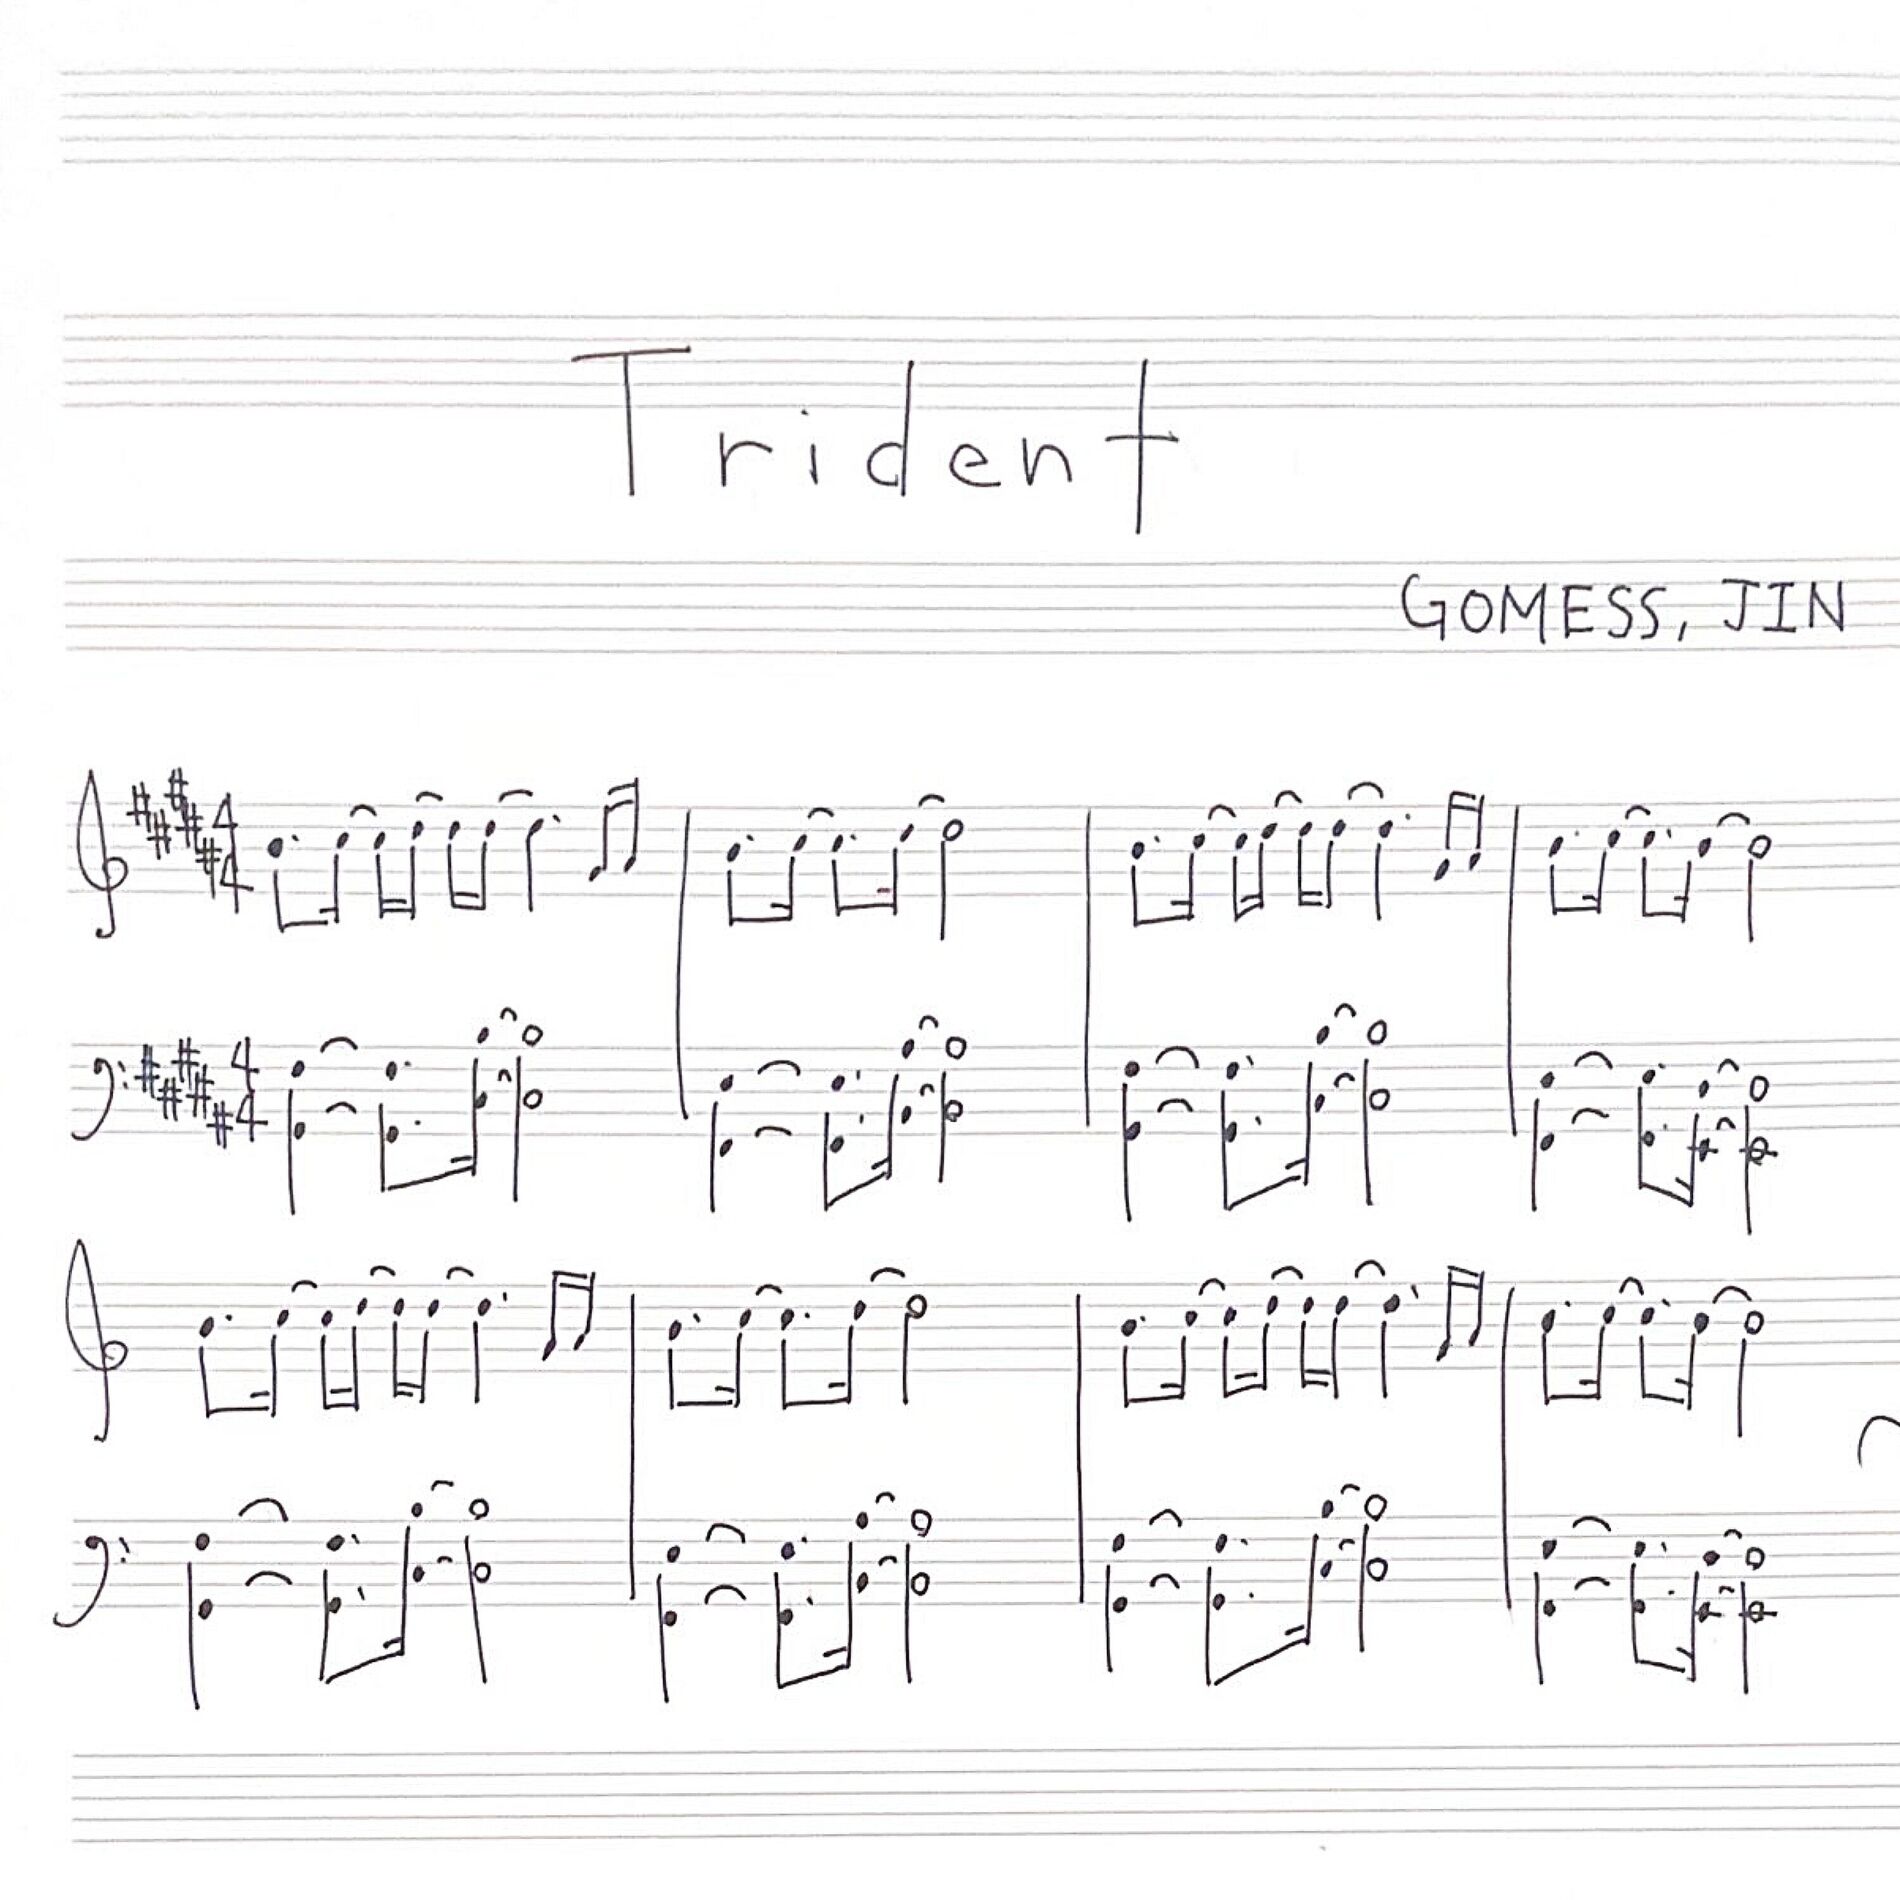 Trident
GOMESS, JIN
4
4
4
4